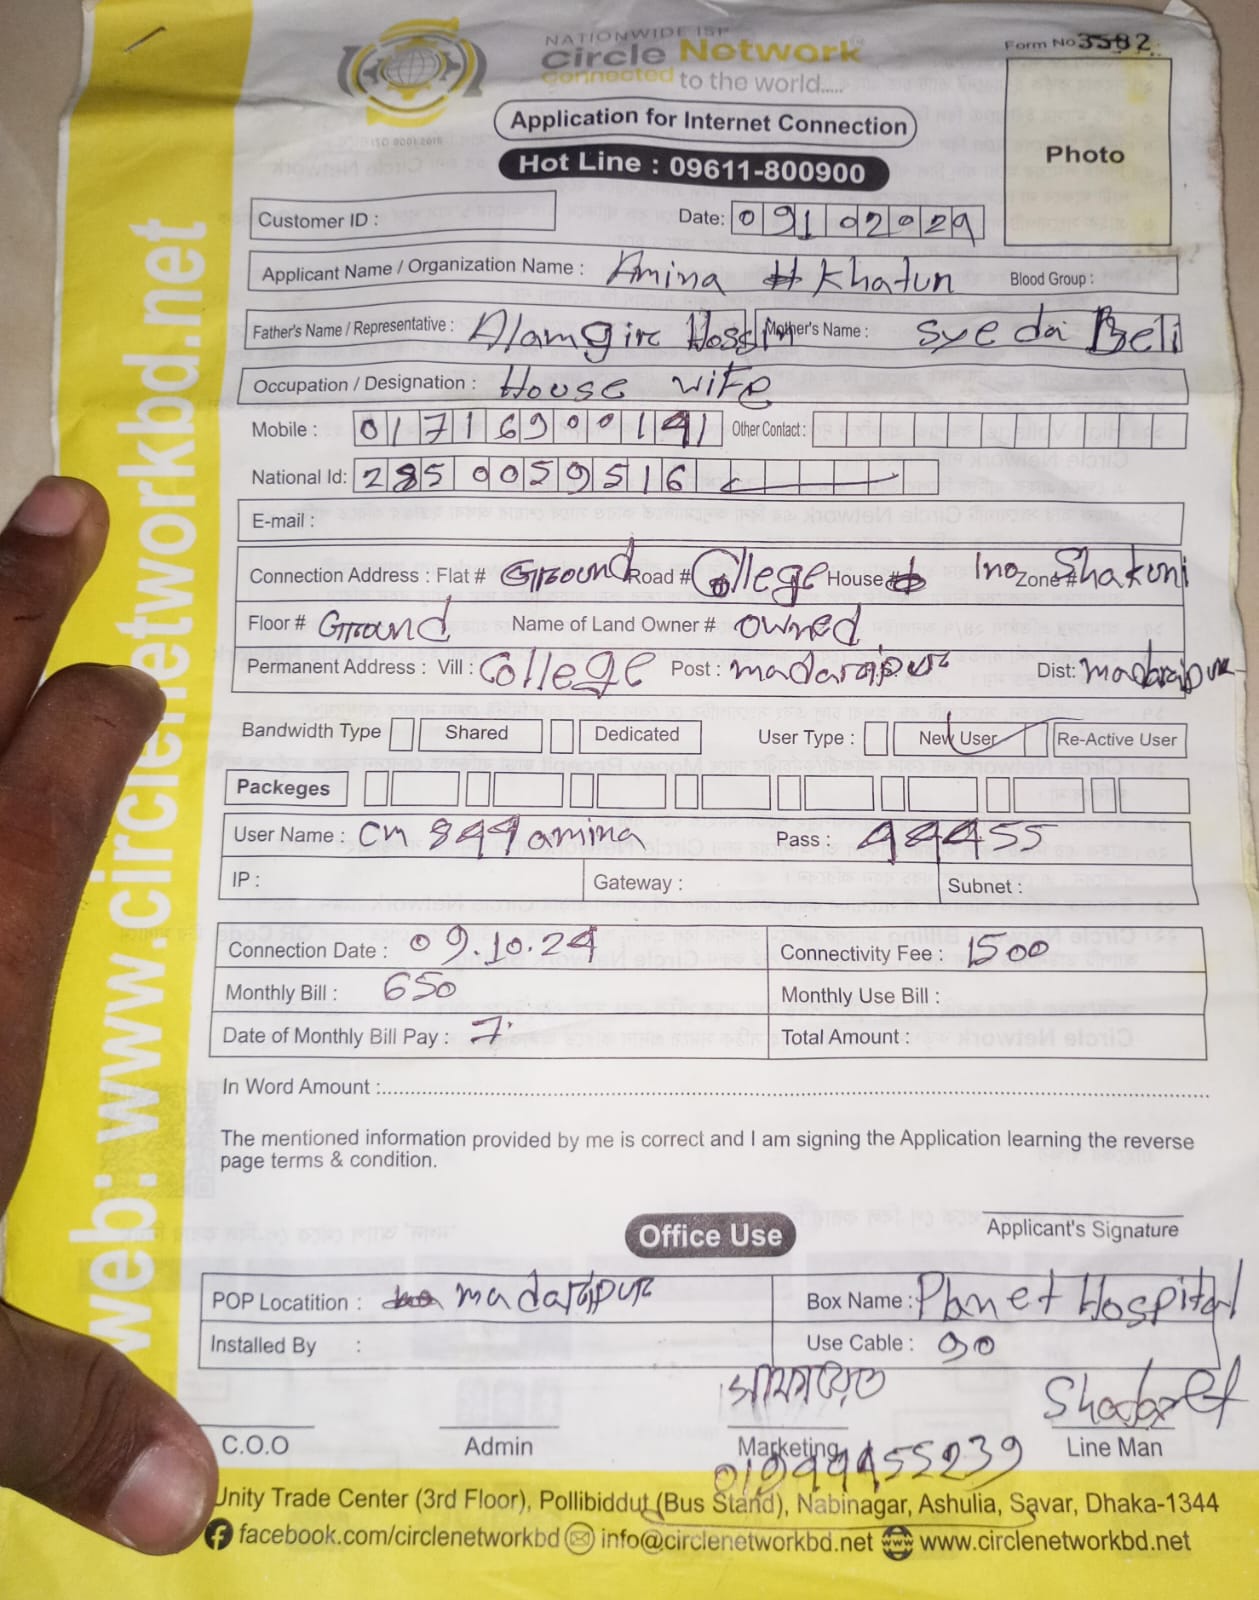 NATIONWIDE ISP
Circle Network
Connected to the world.....
Form No 3582
ISO 9001:2015
Application for Internet Connection
Hot Line : 09611-800900
Photo
Customer ID :
Date: 09102024
Applicant Name / Organization Name : Amina Khatun Blood Group :
Father's Name / Representative : Alamgir Hossin Mother's Name : Syeda Beli
Occupation / Designation : House wife
Mobile : 01716900141 Other Contact :
National Id: 2850059516
E-mail :
Connection Address : Flat # Ground Road # College House # Ino Zone # Shakuni
Floor # Ground Name of Land Owner # owned
Permanent Address : Vill : College Post : madaripur Dist: madaripur
Bandwidth Type Shared Dedicated User Type : New User Re-Active User
Packeges
User Name : cn 844 amina Pass : 44455
IP : Gateway : Subnet :
Connection Date : 09.10.24 Connectivity Fee : 1500
Monthly Bill : 650 Monthly Use Bill :
Date of Monthly Bill Pay : 7 Total Amount :
In Word Amount :
The mentioned information provided by me is correct and I am signing the Application learning the reverse
page terms & condition.
Applicant's Signature
Office Use
POP Locatition : madaripur Box Name : Planet Hospital
Installed By : Use Cable : 90
C.O.O Admin Marketing Line Man
Unity Trade Center (3rd Floor), Pollibiddut (Bus Stand), Nabinagar, Ashulia, Savar, Dhaka-1344
facebook.com/circlenetworkbd info@circlenetworkbd.net www.circlenetworkbd.net
web: www.circlenetworkbd.net